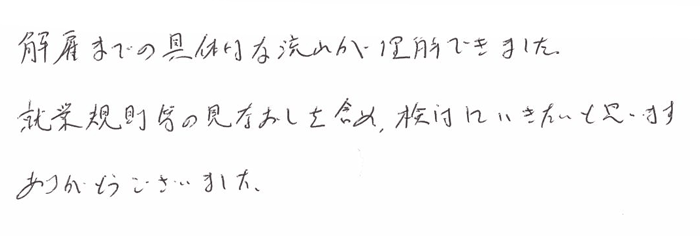 解雇までの具体的な流れが理解できました。
就業規則等の見なおしを含め、検討していきたいと思います
ありがとうございました。